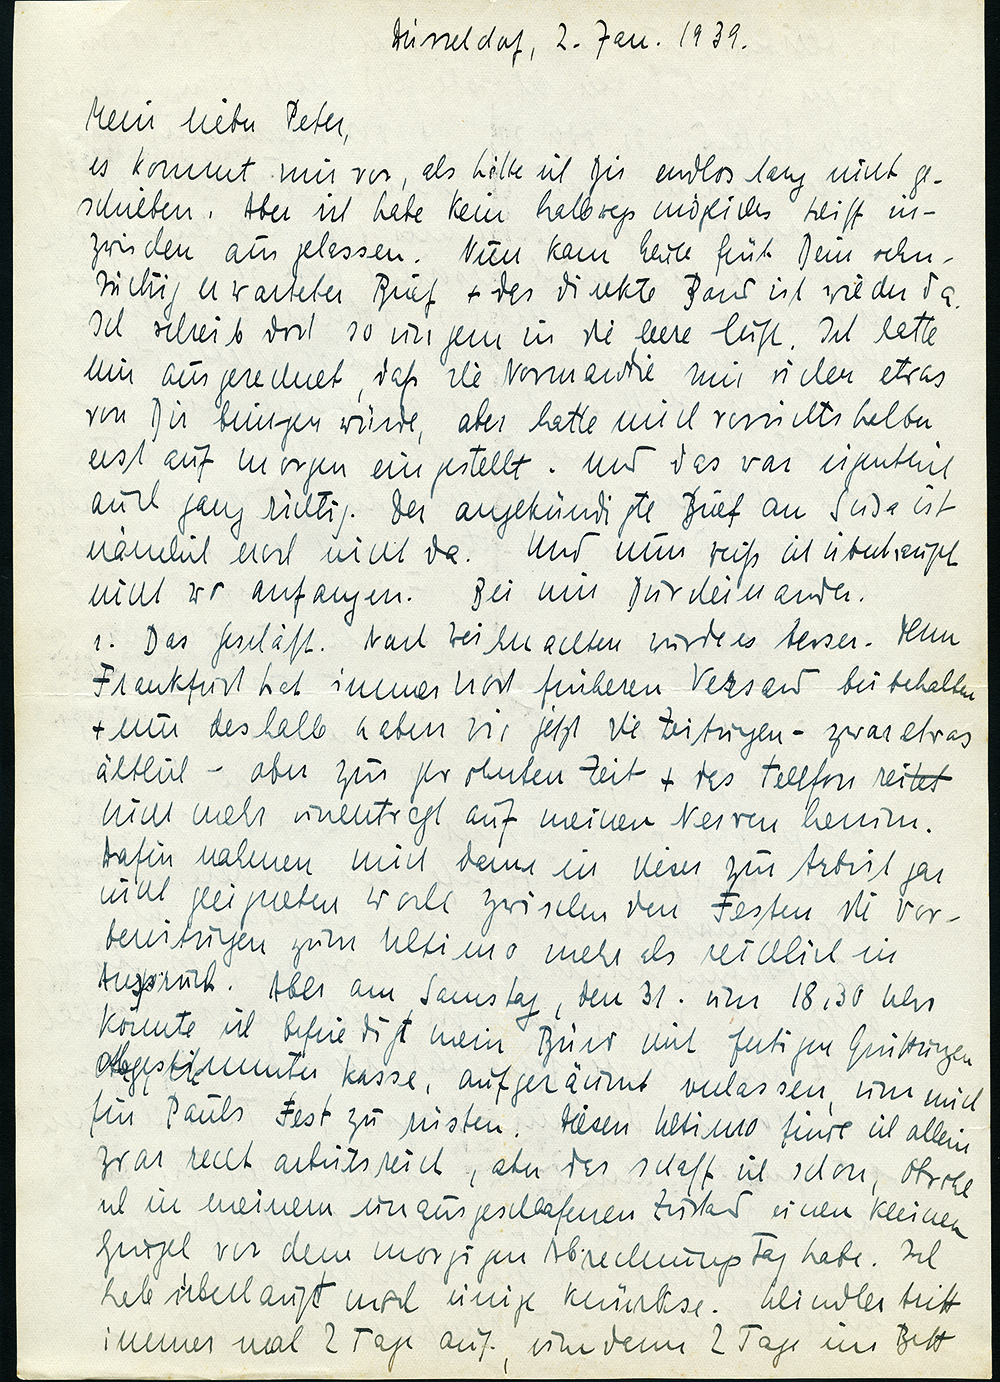 Düsseldorf, 2. Jan. 1939.
Mein lieber Peter,
es kommt mir vor, als hätte ich Dir endlos lang nicht ge-
schrieben. Aber ich habe kein halbwegs mögliches Schiff in-
zwischen ausgelassen. Nun kam heute früh Dein sehn-
süchtig erwarteter Brief + das direkte Band ist wieder da.
Ich schreib doch so ungern in die leere Luft. Ich hatte
mir ausgerechnet, daß die Normandie mir sicher etwas
von Dir bringen würde, aber hatte mich vorsichtshalber
erst auf morgen eingestellt. Und das war eigentlich
auch ganz richtig. Der angekündigte Brief an ist
nämlich noch nicht da. Und nun weiß ich überhaupt
nicht wo anfangen. Bei mir Durcheinander.
1. Das Geschäft. Nach Weihnachten wurde es besser. Denn
Frankfurt hat immer noch früheren Versand beibehalten
+ nun deshalb haben wir jetzt die Zeitungen - zwar etwas
ältlich - aber zur gewohnten Zeit + das Telefon reitet
nicht mehr unentwegt auf meinen Nerven herum.
Dafür nahmen mich dann in dieser zur Arbeit gar
nicht geeigneten Woche zwischen den Festen die Vor-
bereitungen zum Ultimo mehr als reichlich in
Anspruch. Aber am Samstag, den 31. um 18,30 Uhr
konnte ich befriedigt mein Büro mit fertigen Quittungen
abgestimmter Kasse, aufgeräumt verlassen, um mich
für Pauls Fest zu rüsten. Diesen Ultimo finde ich allein
zwar recht arbeitsreich, aber das schaff ich schon, obwohl
ich in meinem unausgeschlafenen Zustand einen kleinen
Grusel vor dem morgigen Abrechnungstag habe. Ich
hab überhaupt noch einige tritt
immer mal 2 Tage auf, um dann 2 Tage im Bett